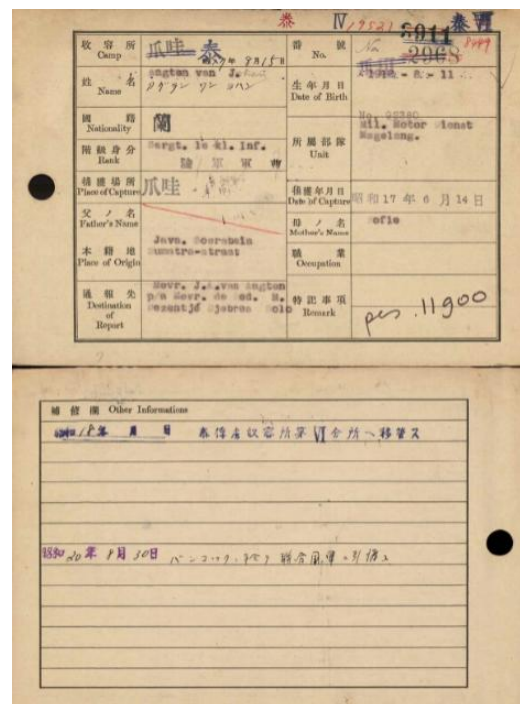 泰 IV 19521 3911 泰 VI
收容所 Camp 爪哇 泰 昭和17年 8月15日 番號 No. No. 2968
姓名 Name angten van J. 生年月日 Date of Birth - 8 - 11
國籍 Nationality 蘭 所屬部隊 Unit Mil. Motor Dienst Magelang.
階級身分 Rank Sergt. 1e kl. Inf. 陸軍軍曹
捕獲場所 Place of Capture 爪哇 捕獲年月日 Date of Capture 昭和17年 6月14日
父ノ名 Father's Name 母ノ名 Mother's Name Sofie
本籍地 Place of Origin Java. Soerabaia Sumatra-straat 職業 Occupation
通報先 Destination of Report Mevr. J.A. van angten p/a Mevr. de Wed. M. Djebres Solo 特記事項 Remark pes. 11900
補修欄 Other Informations
昭和18年 月 日 泰俘虜収容所第VI分所ヘ移管ス
昭和20年 8月30日 バンコックニ於テ聯合國軍ニ引渡ス